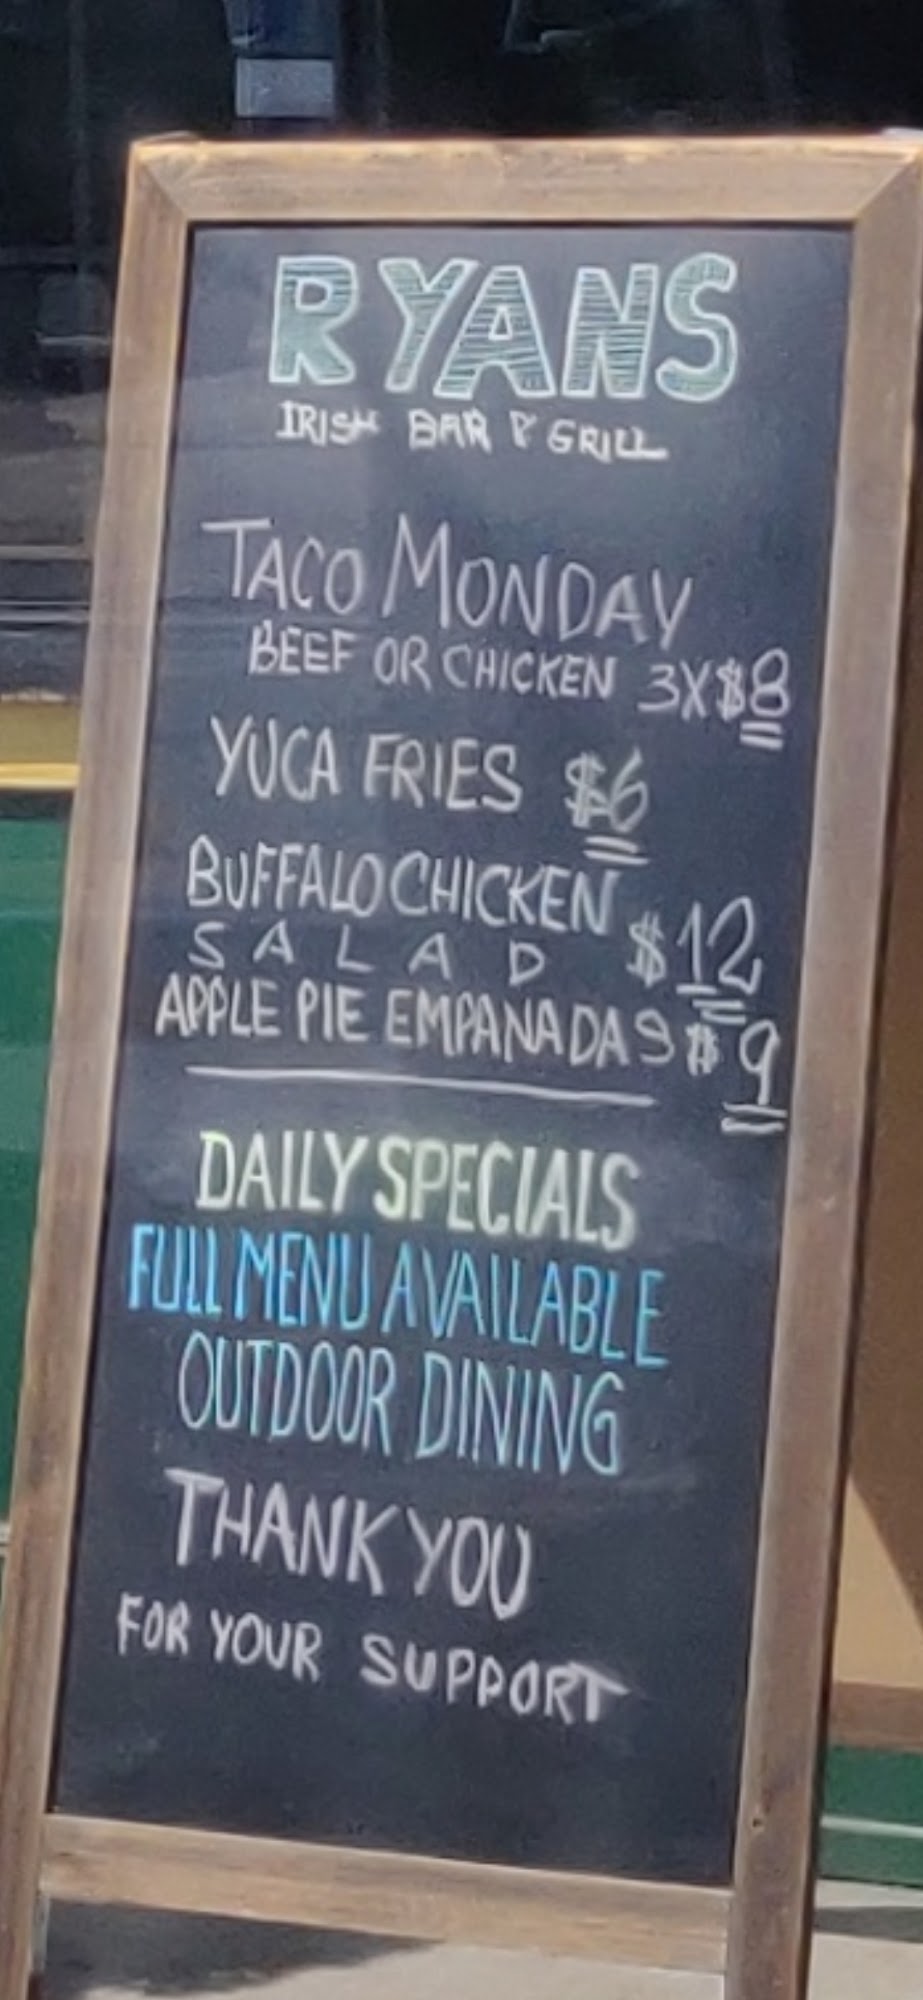 RYANS
IRISH BAR & GRILL
TACO MONDAY
BEEF OR CHICKEN 3X$8
YUCA FRIES $6
BUFFALO CHICKEN
SALAD $12
APPLE PIE EMPANADAS $9
DAILY SPECIALS
FULL MENU AVAILABLE
OUTDOOR DINING
THANK YOU
FOR YOUR SUPPORT